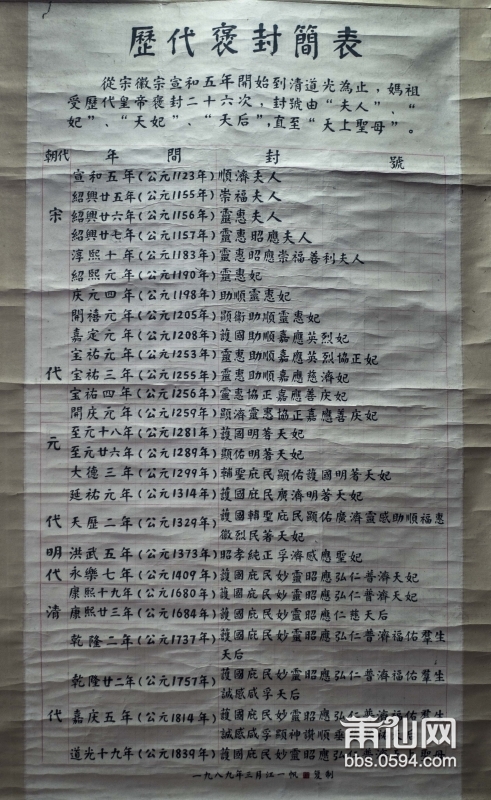 歷代褒封簡表
從宋徽宗宣和五年開始到清道光為止，媽祖
受歷代皇帝褒封二十六次，封號由“夫人”、“
妃”、“天妃”、“天后”，直至“天上聖母”。
朝代 年間 封號
宣和五年(公元1123年) 順濟夫人
紹興廿五年(公元1155年) 崇福夫人
宋 紹興廿六年(公元1156年) 靈惠夫人
紹興廿七年(公元1157年) 靈惠昭應夫人
淳熙十年(公元1183年) 靈惠昭應崇福善利夫人
紹熙元年(公元1190年) 靈惠妃
庆元四年(公元1198年) 助順靈惠妃
開禧元年(公元1205年) 顯衛助順靈惠妃
嘉定元年(公元1208年) 護國助順嘉應英烈妃
宝祐元年(公元1253年) 靈惠助順嘉應英烈協正妃
代 宝祐三年(公元1255年) 靈惠助順嘉應慈濟妃
宝祐四年(公元1256年) 靈惠協正嘉應善庆妃
開庆元年(公元1259年) 顯濟靈惠協正嘉應善庆妃
元 至元十八年(公元1281年) 護國明著天妃
至元廿六年(公元1289年) 顯佑明著天妃
大德三年(公元1299年) 輔聖庇民顯佑護國明著天妃
延祐元年(公元1314年) 護國庇民廣濟明著天妃
代 天歷二年(公元1329年) 護國輔聖庇民顯佑廣濟靈感助順福惠
徽烈民著天妃
明 洪武五年(公元1373年) 昭孝純正孚濟感應聖妃
代 永樂七年(公元1409年) 護國庇民妙靈昭應弘仁普濟天妃
康熙十九年(公元1680年) 護國庇民妙靈昭應弘仁普濟天妃
清 康熙廿三年(公元1684年) 護國庇民妙靈昭應仁慈天后
乾隆二年(公元1737年) 護國庇民妙靈昭應弘仁普濟福佑羣生
天后
乾隆廿二年(公元1757年) 護國庇民妙靈昭應弘仁普濟福佑羣生
誠感咸孚天后
代 嘉庆五年(公元1814年) 護國庇民妙靈昭應弘仁普濟福佑羣生
誠感咸孚顯神讚順垂
道光十九年(公元1839年) 護國庇民妙靈昭應弘仁普濟
一九八九年三月江一帆 复制
莆仙网
bbs.0594.com